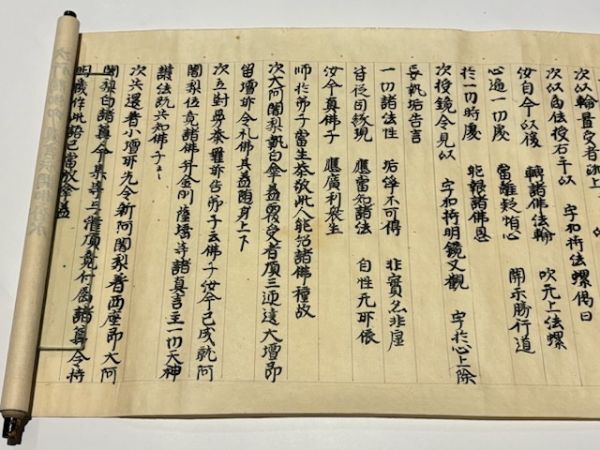 次以輪置受者
次以自伝授右手以　字和析法螺偈曰
汝自今以後　轉諸佛法輪　吹无上法螺
心遍一切處　當離疑怕心　開示勝行道
於一切時處　能報諸佛恩
次授鏡令見以　字和析明鏡又觀　字於心上除
妄執垢告言
一切諸法性　垢淨不可得　非實亦非虛
皆從因緣現　應當知諸法　自性无所依
汝今真佛子　應廣利衆生
師於弟子當生恭敬此人能紹諸佛種故
次大阿闍梨執白傘蓋覆受者頂三遍遶大壇即
留壇前令礼佛其蓋隨身上下
次立對曼荼羅前告弟子云佛子汝今已成就阿
闍梨位竟諸佛并金剛薩埵等諸真言主一切天神
護法既共知佛子々
次共還者小壇所先令新阿闍梨着西座即大阿
闍梨白諸尊今某授与灌頂竟付屬諸尊令持
明藏作此語已當放傘蓋